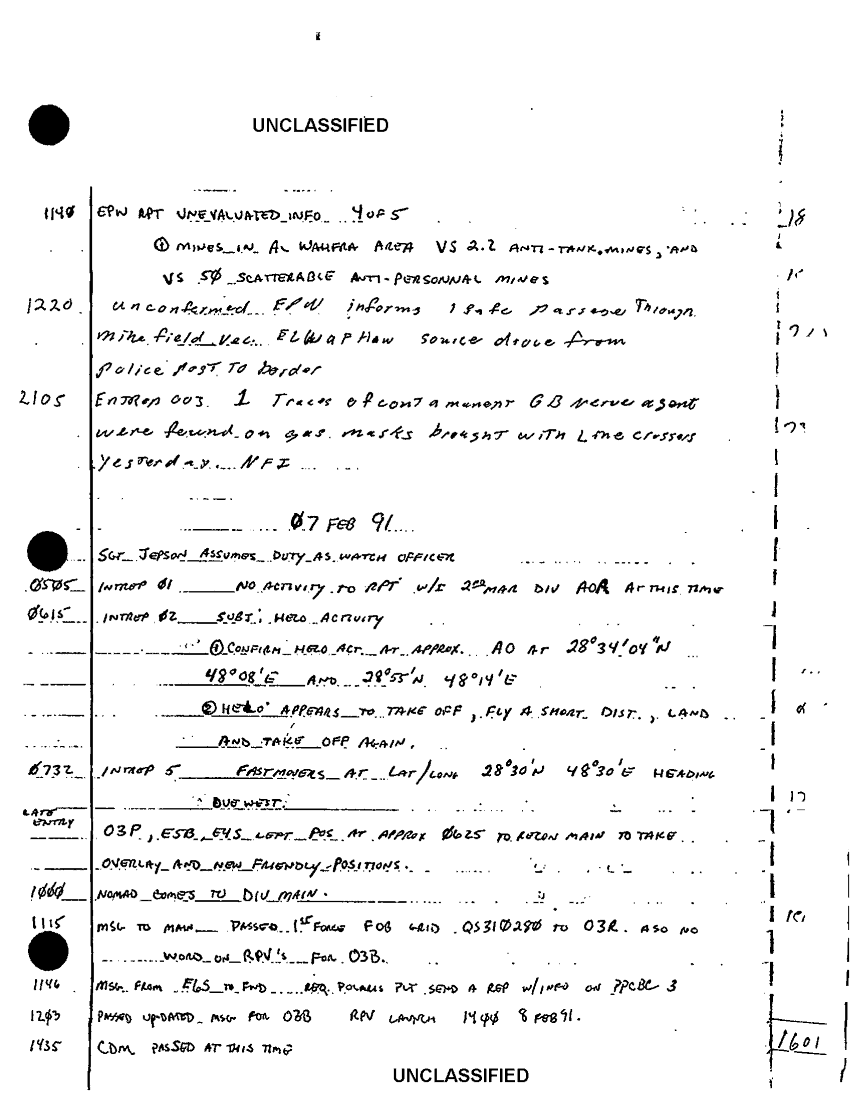 UNCLASSIFIED
114Ø EPW RPT UNEVALUATED INFO 4 OF 5
18
① MINES IN AL WAHFRA AREA VS 2.2 ANTI-TANK MINES, AND
VS 5Ø SCATTERABLE ANTI-PERSONNAL MINES
1220 unconfermed EPW informs 1 safe passage Through
mine field vec. source drove from
police post To border
2105 003. 1 Traces of contamenent GB nerve agent
were found on gas masks brought with Line crossers
yesterday. NFI
Ø7 FEB 91
SGT JEPSON ASSUMES DUTY AS WATCH OFFICER
Ø5Ø5 INTREP Ø1 NO ACTIVITY TO RPT W/I 2ND MAR DIV AOR AT THIS TIME
Ø615 INTREP Ø2 SUBJ: HELO ACTIVITY
① CONFIRM HELO ACT AT APPROX. AO AT 28°34'04"N
48°08'E AND 28°55'N 48°14'E
② HELO APPEARS TO TAKE OFF, FLY A SHORT DIST., LAND
AND TAKE OFF AGAIN.
Ø732 INTREP 5 FASTMOVERS AT LAT/LONG 28°30'N 48°30'E HEADING
DUE WEST.
LATE
ENTRY
O3P, E5B, E4S LEFT POS AT APPROX Ø625 TO RECON MAIN TO TAKE
OVERLAY AND NEW FRIENDLY POSITIONS.
1ØØØ NOMAD COMES TO DIV MAIN.
1115 MSG TO MAIN PASSED 1ST FORCE FOB GRID QS31Ø28Ø TO O3R. ASO NO
WORD ON RPV'S FOR O3B.
1146 MSG FROM E6S TO FWD REQ POLARIS PLT SEND A REP W/INFO ON PPCBC 3
12Ø3 PASSED UPDATED MSG FOR O3B RPV LAUNCH 14ØØ 8 FEB 91.
1435 CDM PASSED AT THIS TIME
1601
UNCLASSIFIED